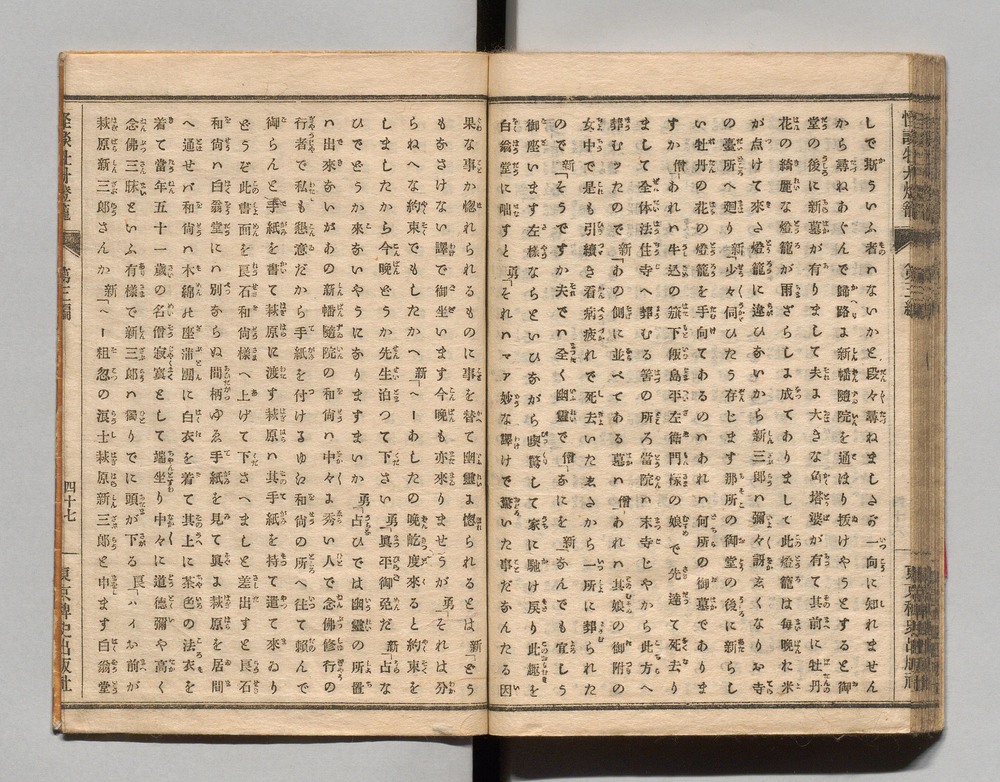 怪談牡丹燈籠
第三編
東京稗史出版社
して斯ういふ者ハないかと段々尋ねましさが一向に知れません
から尋ねあぐんで歸路よ新幡隨院を通はり拔けやうとすると御
堂の後に新墓が有りまして夫よ大きな角塔婆が有て其前に牡丹
花の綺麗な燈籠が雨ざらしよ成てありまして此燈籠は毎晩お米
が点けて來さ燈籠に違ひないから新三郎ハ彌々訝ゑくなりお寺
の臺所へ廻り 新「少々伺ひたう存じます那所の御堂の後に新らし
い牡丹の花の燈籠を手向てあるのハあれハ何所の御墓でありま
すか 僧「あれハ牛込の籏下飯島平左衞門樣の娘で先達て死去り
まして全体法住寺へ葬むる筈の所ろ當院ハ末寺じやから此方へ
葬むッたので 新「あの側に並べてある墓ハ 僧「あれハ其娘の御附の
女中で是も引續き看病疲れで死去いたゑさから一所に葬られた
ので 新「そうですか夫でハ全く幽靈で 僧「なにを 新「なんでも宜しう
御座います左樣ならといひながら喫驚して家に馳け戾り此趣を
白翁堂に咄すと 勇「それハマア妙な譯けで驚いた事だなんたる因
果な事か惚れられるものに事を替て幽靈よ惚られるとは 新「どう
もなさけない譯で御坐います今晩も亦來りませうか 勇「それは分
らねへな約束でもしたかへ 新「へーあしたの晩屹度來ると約束を
しましたから今晩どうか先生泊つて下さい 勇「眞平御免だ 新「占な
ひでどうか來ないやうになりますまいか 勇「占ひでは幽靈の所置
ハ出來ないがあの新幡隨院の和尙ハ中々よ秀い人で念佛修行の
行者で私も懇意だから手紙を付けるゆゑ和尙の所へ往て賴んで
御らんと手紙を書て萩原に渡す萩原ハ其手紙を持て遣て來り
どうぞ此書面を良石和尙樣へ上げて下さへましと差出すと良石
和尙ハ白翁堂にハ別からぬ間柄ゆゑ手紙を見て眞よ萩原を居間
へ通せバ和尙ハ木綿の座蒲團に白衣を着て其上に茶色の法衣を
着て當年五十一歲の名僧寂寞として端坐り中々に道德彌や高く
念佛三昧といふ有樣で新三郎ハ獨りでに頭が下る 良「ハイお前が
萩原新三郎さんか 新「へー粗忽の浪士萩原新三郎と申ます白翁堂
怪談牡丹燈籠
第三編
四十七
東京稗史出版社